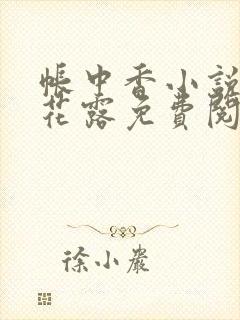 帐中香小說
花露免費閱
徐小巖